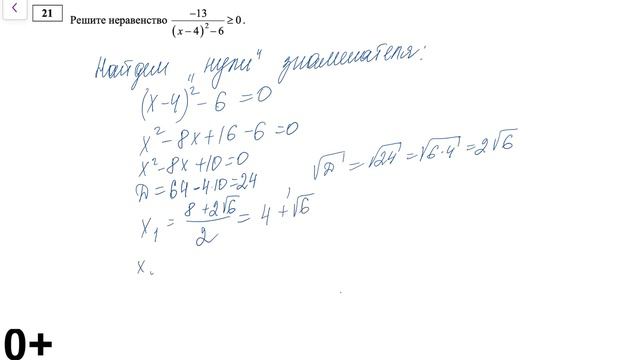 21 Решите неравенство −13/((x−4)²−6) ≥ 0.
Найдем „нули“ знаменателя:
(x−4)²−6=0
x²−8x+16−6=0
x²−8x+10=0
Д=64−4·10=24
√Д=√24=√6·4=2√6
x₁=(8+2√6)/2=4+√6
x
0+